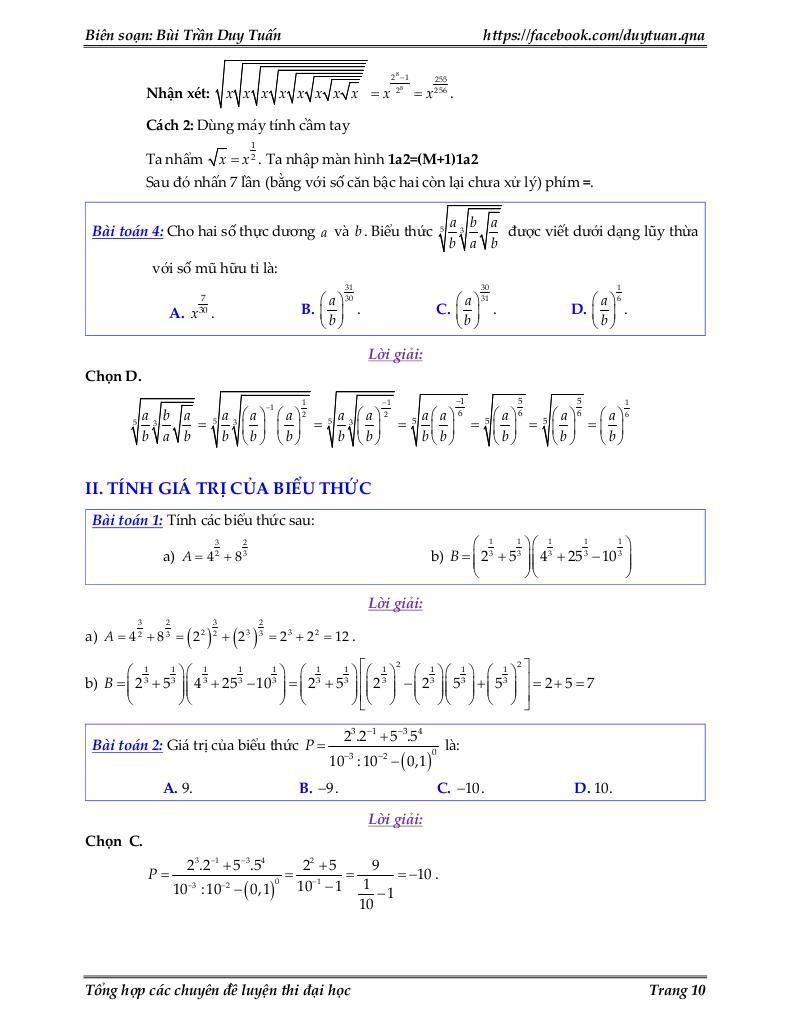 Biên soạn: Bùi Trần Duy Tuấn https://facebook.com/duytuan.qna
Nhận xét: √(x√(x√(x√(x√(x√(x√(x√x))))))) = x^((2^8−1)/2^8) = x^(255/256).
Cách 2: Dùng máy tính cầm tay
Ta nhẩm √x = x^(1/2). Ta nhập màn hình 1a2=(M+1)1a2
Sau đó nhấn 7 lần (bằng với số căn bậc hai còn lại chưa xử lý) phím =.
Bài toán 4: Cho hai số thực dương a và b. Biểu thức ⁵√(a/b ³√(b/a √(a/b))) được viết dưới dạng lũy thừa
với số mũ hữu tỉ là:
A. x^(7/30). B. (a/b)^(31/30). C. (a/b)^(30/31). D. (a/b)^(1/6).
Lời giải:
Chọn D.
⁵√(a/b ³√(b/a √(a/b))) = ⁵√(a/b ³√((a/b)^(−1) (a/b)^(1/2))) = ⁵√(a/b ³√((a/b)^(−1/2))) = ⁵√(a/b (a/b)^(−1/6)) = ⁵√((a/b)^(5/6)) = ⁵√((a/b)^(5/6)) = (a/b)^(1/6)
II. TÍNH GIÁ TRỊ CỦA BIỂU THỨC
Bài toán 1: Tính các biểu thức sau:
a) A = 4^(3/2) + 8^(2/3) b) B = (2^(1/3) + 5^(1/3))(4^(1/3) + 25^(1/3) − 10^(1/3))
Lời giải:
a) A = 4^(3/2) + 8^(2/3) = (2^2)^(3/2) + (2^3)^(2/3) = 2^3 + 2^2 = 12.
b) B = (2^(1/3) + 5^(1/3))(4^(1/3) + 25^(1/3) − 10^(1/3)) = (2^(1/3) + 5^(1/3))[(2^(1/3))^2 − (2^(1/3))(5^(1/3)) + (5^(1/3))^2] = 2 + 5 = 7
Bài toán 2: Giá trị của biểu thức P = (2^3.2^(−1) + 5^(−3).5^4)/(10^(−3) : 10^(−2) − (0,1)^0) là:
A. 9. B. −9. C. −10. D. 10.
Lời giải:
Chọn C.
P = (2^3.2^(−1) + 5^(−3).5^4)/(10^(−3) : 10^(−2) − (0,1)^0) = (2^2 + 5)/(10^(−1) − 1) = 9/(1/10 − 1) = −10.
Tổng hợp các chuyên đề luyện thi đại học Trang 10